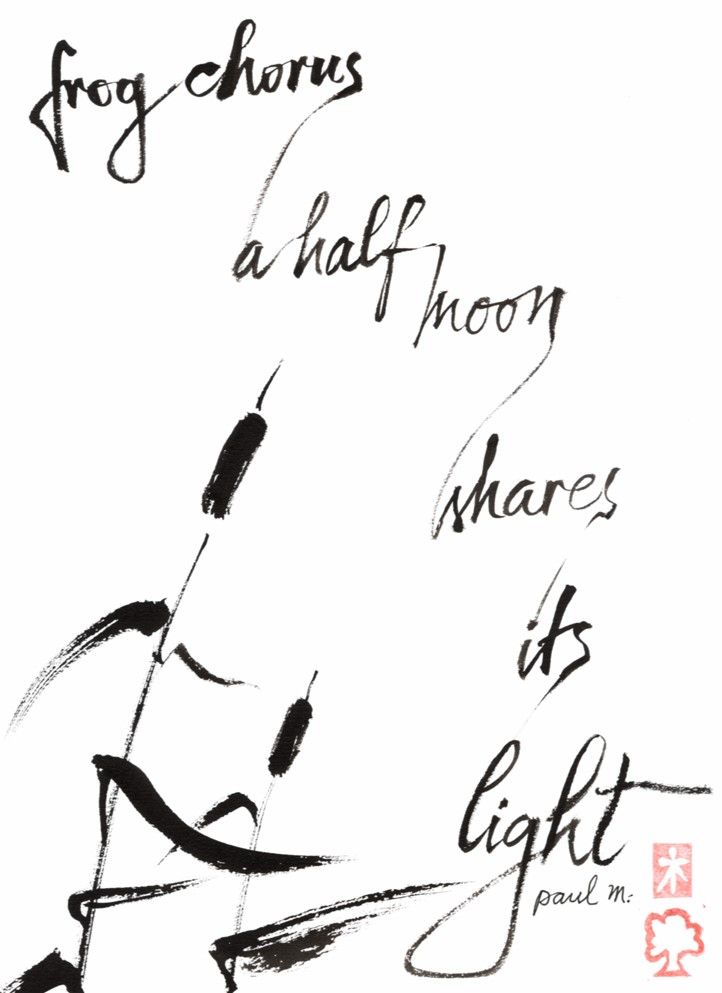 frog chorus
a half
moon
shares
its
light
paul m.